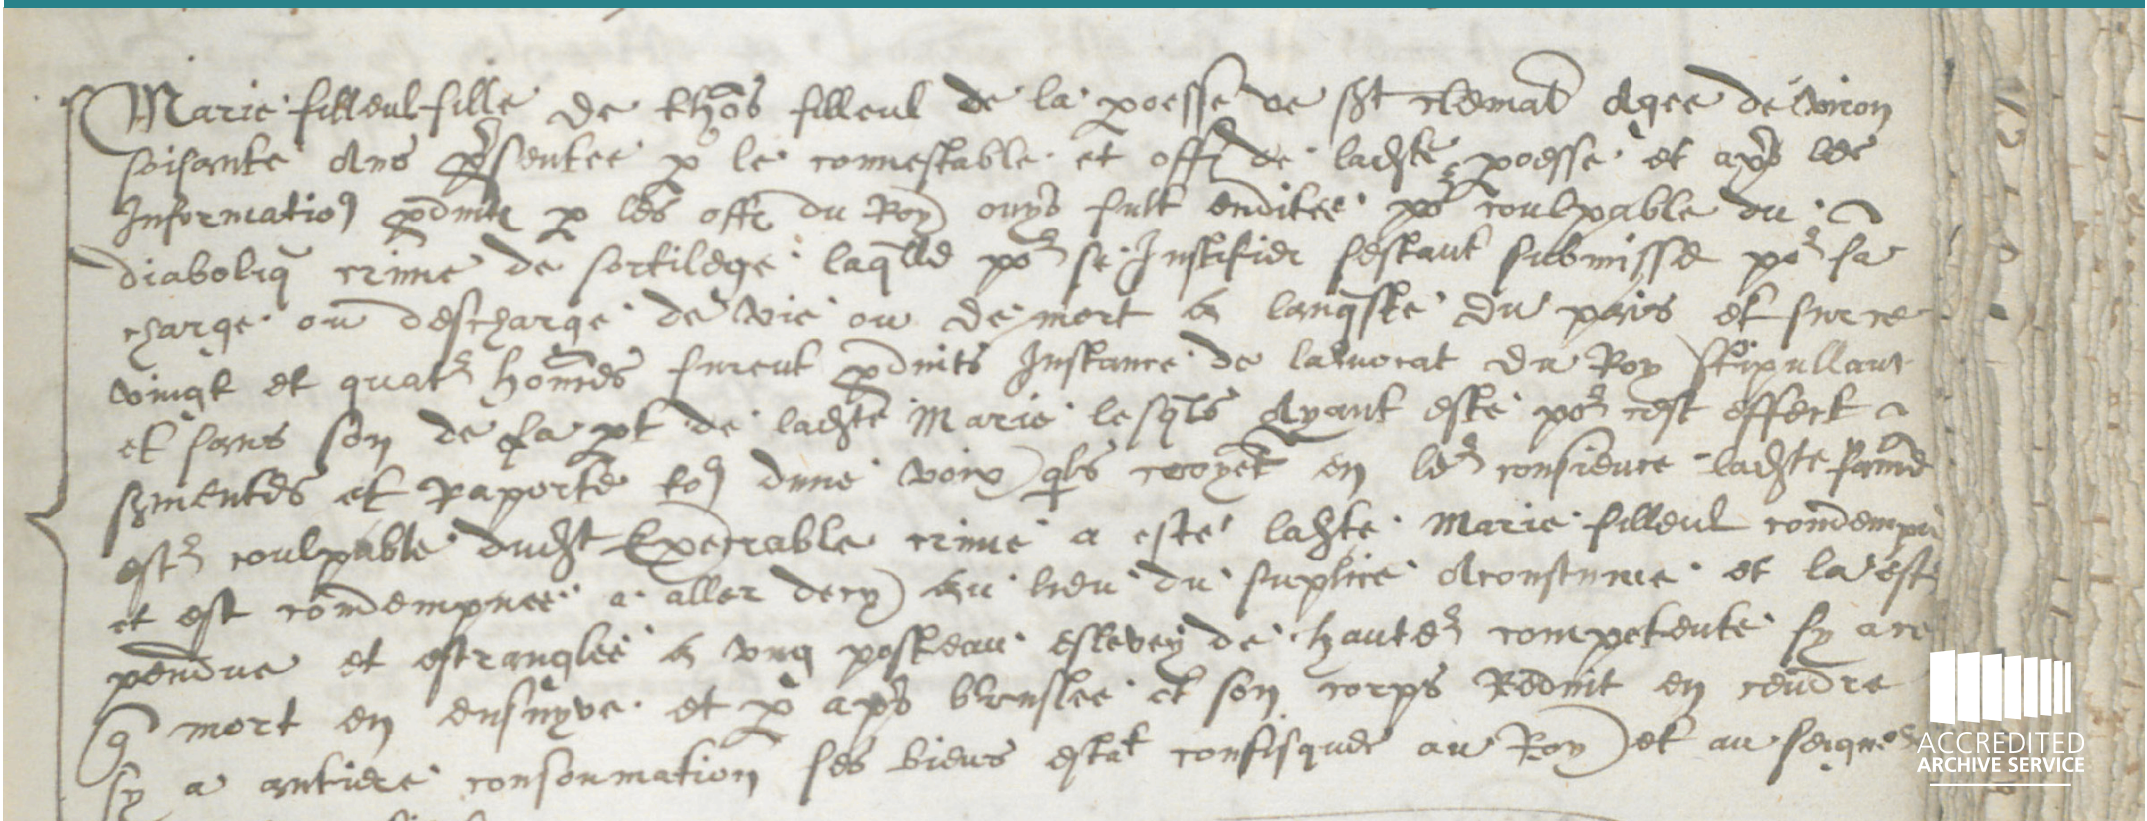 Marie filleul fille de Thoms filleul de la poesse de St clemat agee de viron
soisante ans psentee p le connestable et offi de ladste poesse et aps les
Informatio pduits p les offi du Roy ouys fult enditee po coulpable du
diaboliq crime de sortilege laqlle po se Justifier sestant submisse po sa
charge ou descharge de vie ou de mort a lanqste du pais et sur ce
vingt et quat homes furent pduits Instance de lavocat du Roy stipullant
et sans son de sa pt de ladste Marie lesqls ayant este po cest effect
smentes et Raporte to dune voix qls croyet en le consience ladste fame
est coulpable dudst Execrable crime a este ladste Marie filleul condempn
et est condempnee a aller decy au lieu du suplice acoustume et la est
pendue et estranglee a ung posteau eslevey de haute competente sy a ce
q mort en ensuyve et p aps bruslee et son corps Reduit en cendre
sy a antiere consommation ses biens estat confisques au Roy et au seigne
ACCREDITED
ARCHIVE SERVICE